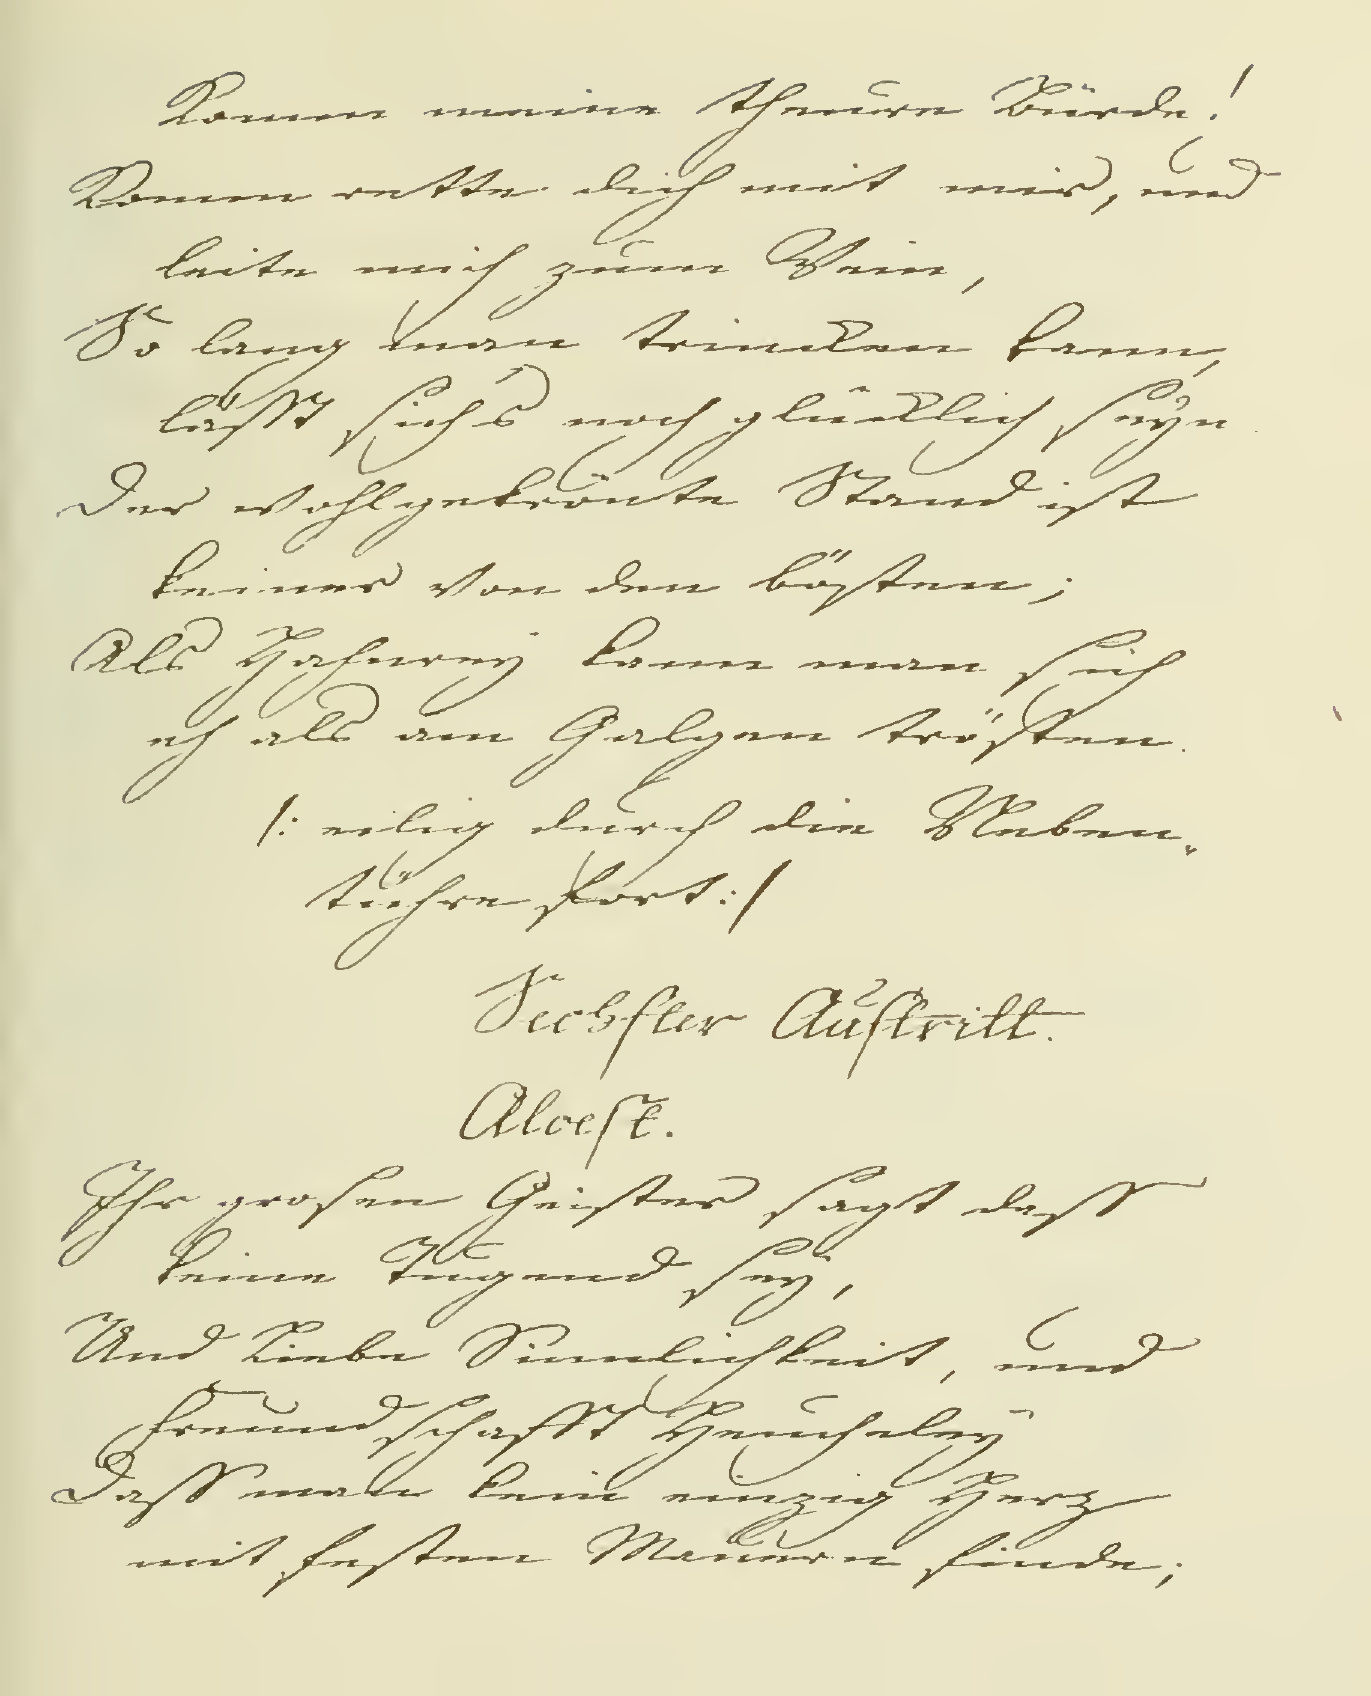 Komm meine theure Bürde!
Komm rette dich mit mir, und
leite mich zum Wein,
So lang man trincken kann,
lässt sich's noch glücklich seyn
Der wohlgekrönte Stand ist
keiner von den bösten;
Als Hahnrey kann man sich
eh als am Galgen trösten.
/: eilig durch die Neben-
tühre fort :/
Sechster Auftritt.
Alcest.
Ihr grosen Geister sagt dass
keine Tugend sey,
Und Liebe Sinnlichkeit, und
Freundschafft Heucheley
Dass man kein einzig Herz
mit festen Mauern finde;